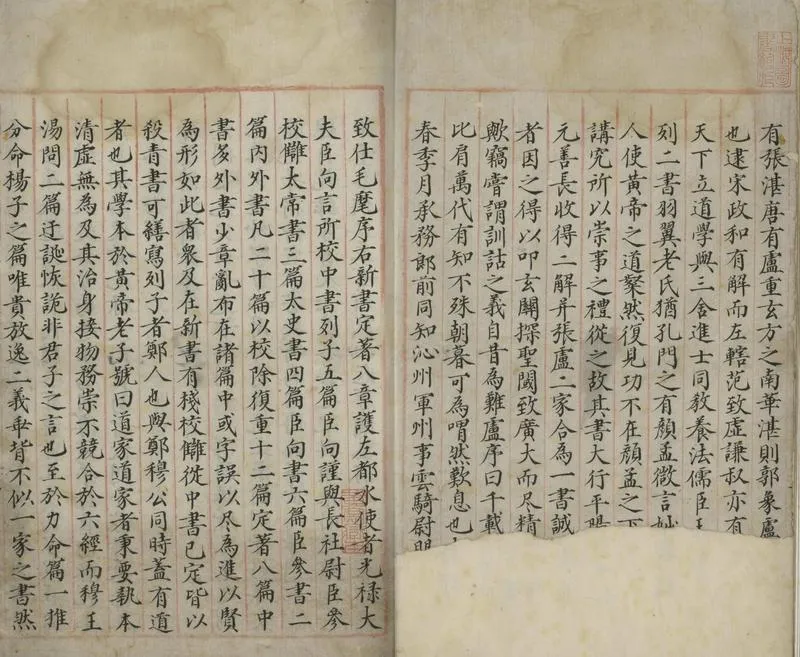 有張湛唐有盧重玄方之南華湛則郭象盧
也逮宋政和有解而左轄范致虛謙叔亦有
天下立道學與三舍進士同教養法儒臣王
列二書羽翼老氏猶孔門之有顏孟微言妙
人使黃帝之道粲然復見功不在顏孟之下
講究所以崇事之禮從之故其書大行平陽
元善長收得二解并張盧二家合為一書誠
者因之得以叩玄關探聖閫致廣大而尽精
歟竊嘗謂訓詁之義自昔為難盧序曰千載
比肩萬代有知不殊朝暮可為喟然歎息也
春季月承務郎前同知沁州軍州事雲騎尉
致仕毛麾序右新書定著八章護左都水使者光祿大
夫臣向言所校中書列子五篇臣向謹與長社尉臣參
校讎太常書三篇太史書四篇臣向書六篇臣參書二
篇內外書凡二十篇以校除復重十二篇定著八篇中
書多外書少章亂布在諸篇中或字誤以尽為進以賢
為形如此者衆及在新書有棧校讎從中書已定皆以
殺青書可繕寫列子者鄭人也與鄭穆公同時蓋有道
者也其學本於黃帝老子號曰道家道家者秉要執本
清虛無為及其治身接物務崇不競合於六經而穆王
湯問二篇迂誕恢詭非君子之言也至於力命篇一推
分命楊子之篇唯貴放逸二義乖背不似一家之書然